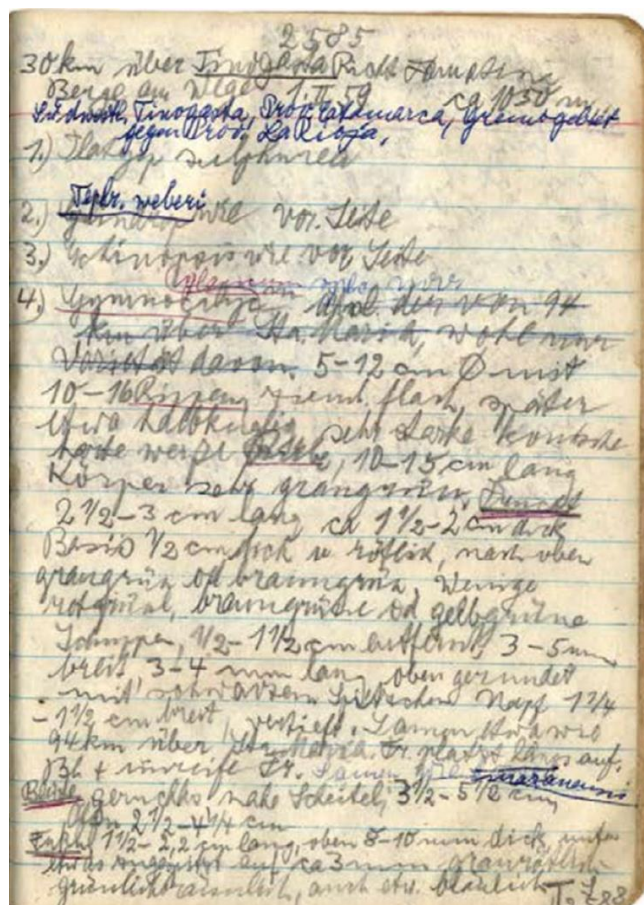 2585
30 km über Tinogasta Richt Famatina
Berge am Wege 1.II.59 ca 1050 m
Südwestl. Tinogasta, Prov. Catamarca, Grenzgebiet
gegen Prov. La Rioja,
1.)
Tephr. weberi
2.) wie vor. Seite
3.) Echinopsis wie vor Seite
4.) Gymnocalyc. der von 94
km über Sta. Maria, wohl nur
Varietät davon. 5-12 cm Ø mit
10-16 Rippen, ziemL flach, später
etwa halbkugelig, sehr starke konische
harte weiße Rübe, 10-15 cm lang
Körper sehr graugrün,
2 1/2-3 cm lang ca 1 1/2-2 cm dick
Basis 1/2 cm dick u rötlich, nach oben
graugrün od braungrün, Wenige
rotgrüne, braungrüne od gelbgrüne
Schuppen, 1/2-1 1/2 cm entfernt, 3-5 mm
breit, 3-4 mm lang, oben gerundet
mit schwarzem Spitzchen Napf 1 1/4
-1 1/2 cm breit, vertieft. Samen etwa wie
94 km über Sta. Maria. Fr. platzt längs auf.
Bl. + unreife Fr. Samen
Blüte, geruchlos nahe Scheitel, 3 1/2-5 1/2 cm
2 1/2-4 1/4 cm
1 1/2-2,2 cm lang, oben 8-10 mm dick, unten
etwas auf ca 3 mm
auch etw. bläulich